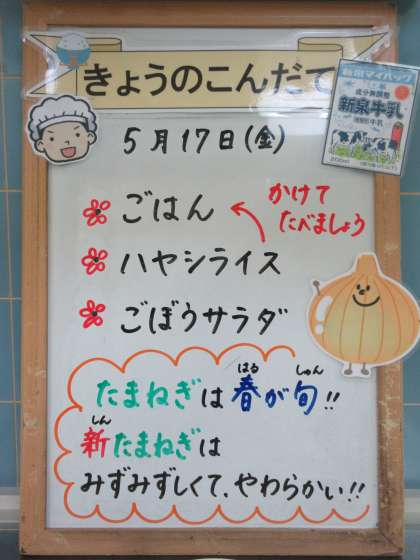 きょうのこんだて
新泉マイパック
成分無調整
新泉牛乳
5月17日(金)
ごはん
かけて
たべましょう
ハヤシライス
ごぼうサラダ
たまねぎは春が旬!!
はる
しゅん
新たまねぎは
しん
みずみずしくて、やわらかい!!